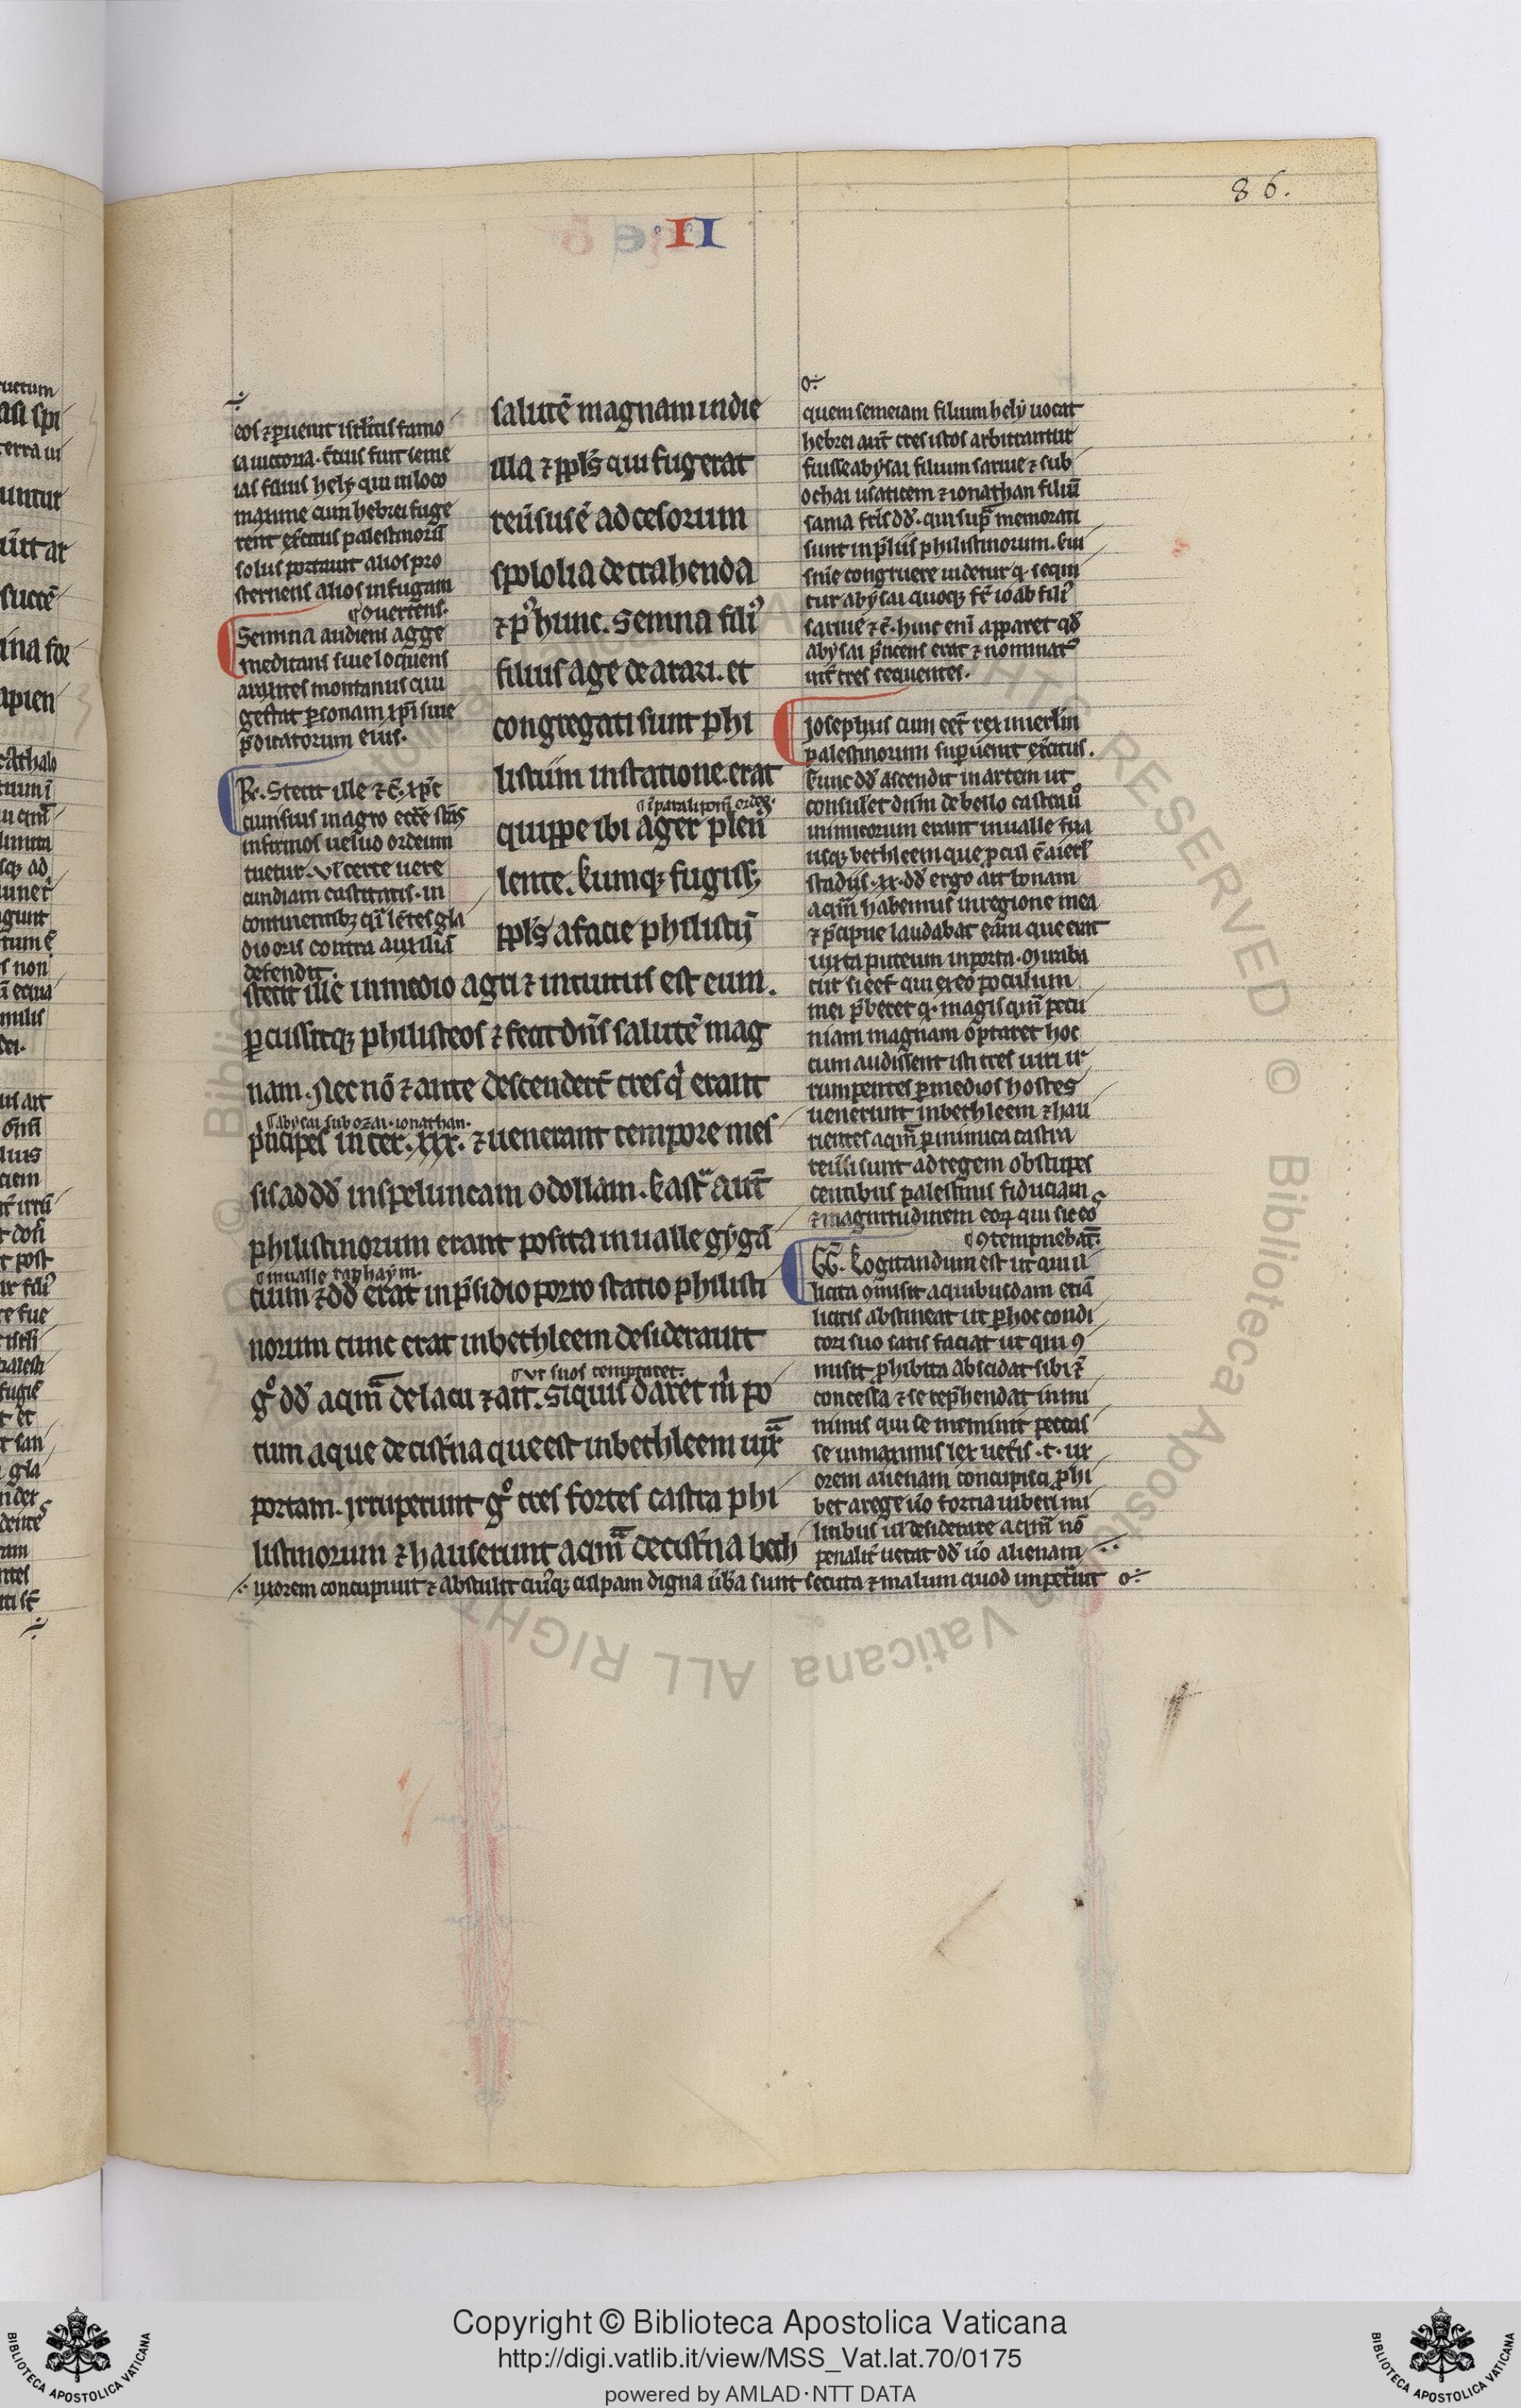 86.
II
eos ⁊ ꝓuenit isrl'itis famo
sa uictoria. t̄cius fuit seme
ias filius hely qui in loco
maxime cum hebrei fuge
rent ex̄citus palestinorū
solus portauit alios pro
sternens alios in fugam
ꝯuertens.
Semma audiens agge
meditans siue loquens
arartes montanus qui
gestat ꝑsonam xp̄i siue
p̄dicatorum eius.
R. Stetit ille ⁊ c̄. xp̄c
infirmos uelud ordeum
tuetur. ul' certe uere
cundiam castitatis. in
dio oris contra auxilia
defendit.
salutē magnam in die
illa ⁊ ppl's qui fugerat
reūsus ē ad cesorum
spololia detrahenda
⁊ pꝰ hunc. Semma filiꝰ
filius age de arari. et
congregati sunt phi
listiim in statione. erat
quippe ibi ager plen
lente. Kumqꝫ fugiss;
ppl's a facie philistiȳ
stetit ille in medio agri ⁊ intuitus est eum.
ꝑcussitqꝫ philisteos ⁊ fecit dn̄s salutē mag
nam. Nec nō ⁊ ante descenderūt tres qͥ erant
abysai subozai. ionathan.
p̄ncipes inter. xxx. ⁊ uenerant tempore mes
sis ad dd̄ in speluncam odollam. Kastͣ aut̄
philistinorum erant posita in ualle gygā
in ualle raphaym.
cium ⁊ dd̄ erat in p̄sidio porro statio philisti
norum tunc erat in bethleem desiderauit
ut suos temptaret.
gͦ dd̄ aqͣm de lacu ⁊ ait. Siquis daret m̄ po
tum aque de cist̄na que est in bethleem iuxͣ
portam. Irruperunt gͦ tres fortes castra phi
listinorum ⁊ hauserunt aqͣm de cist̄na beth
uxorem concupiuit ⁊ abstulit cui'qꝫ culpam digna ūba sunt secuta ⁊ malum quod impet'uit
quem semeiam filium hely uocat
hebrei aut̄ tres istos arbitrantur
fuisse abysai filium saruie ⁊ sub
ochai usatitem ⁊ ionathan filiū
sama fr̄is dd̄. qui supͣ memorati
sunt in p̄liis philistinorum. Kui
sn̄ie congruere uidetur qͩ sequi
tur abysai quoqꝫ fr̄ ioab filiꝰ
saruie ⁊ c̄. hinc eni apparet qd̄
abysai p̄nceps erat ⁊ nominatꝰ
int̄ tres sequentes.
Josephus cum eet̄ rex in ierl'm
palestinorum suꝑuenit ex̄citus.
Tunc dd̄ ascendit in artem ut
consulet dn̄m de bello castra ū
inimicorum erant in ualle sita
usqꝫ bethleem que procul ē a ierl'
stadiis. xx. dd̄ ergo ait bonam
aqͣm habemus in regione mea
⁊ p̄cipue laudabat eam que erat
iuxta puteum in porta. Miraba
tur si eet̄ qui ex eo poculum
mei p̄beret qͩ magis qͣm pecu
niam magnam optaret hoc
cum audissent isti tres uiri ir
rumpentes ꝑ medios hostes
uenerunt in bethleem ⁊ hau
rientes aqͣm ꝑ inimica castra
reūsi sunt ad regem obstupes
centibus palestinis fiduciam
⁊ magnitudinem eoꝝ qui sic eos
ꝯtempnebāt.
GG. Kogitandum est ut qui il
licita ꝯmisit a quibusdam etiā
licitis abstineat ut ꝑ hoc condi
tori suo satis faciat ut qui ꝯ
misit ꝓhibita abscidat sibi ⁊
concessa ⁊ se rep̄hendat in mi
nimis qui se meminit peccas
se in maximis lex uet̄is. t. ux
orem alienam concupisci ꝓhi
bet a rege ūo fortia iuberi mi
litibus ul' desiderare aqͣm nō
penalit̄ uetat dd̄ ūo alienam
Copyright © Biblioteca Apostolica Vaticana
http://digi.vatlib.it/view/MSS_Vat.lat.70/0175
powered by AMLAD·NTT DATA
BIBLIOTECA APOSTOLICA VATICANA
BIBLIOTECA APOSTOLICA VATICANA